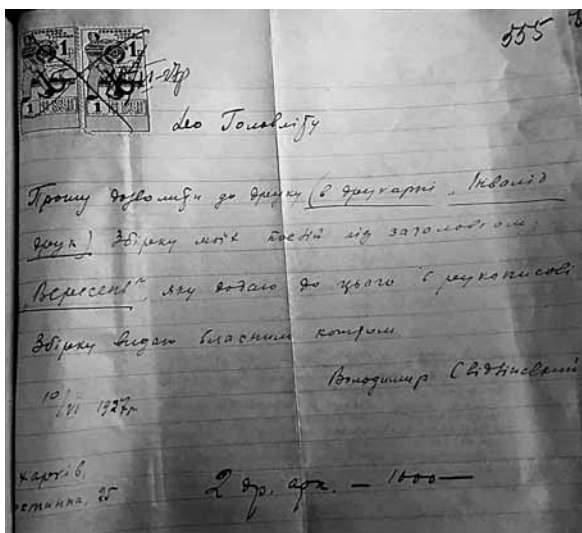 555
1 р 1 р
1 1
VI-27р
До Головліту
Прошу дозволити до друку (в друкарні „Інвалід
друк) Збірку моїх поезій під заголовком:
„Вересень", яку додаю до цього в рукописові
Збірку видаю власним коштом
Володимир Свідзінський
10/VI 1927р.
Харків,
25
2 др. арк. – 1000 –